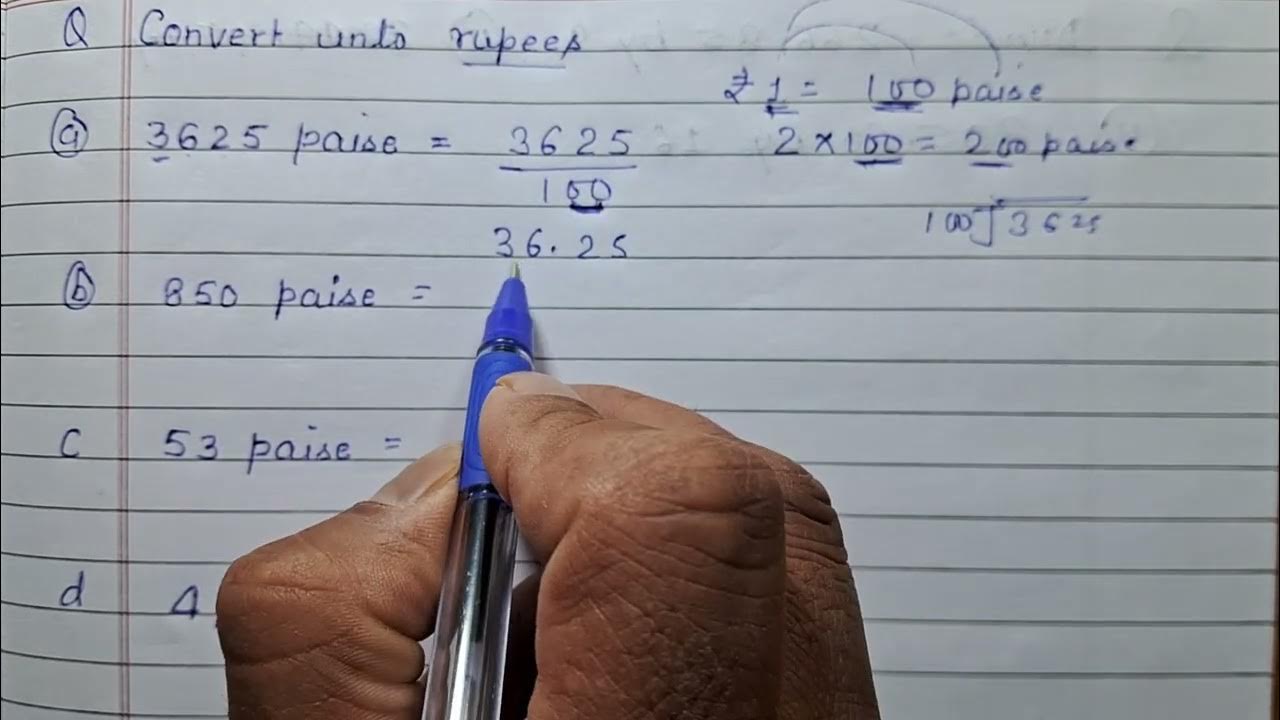 Q Convert unto rupees
₹ 1 = 100 paise
a 3625 paise = 3625
100
2 × 100 = 200 paise
100 3625
36.25
b 850 paise =
c 53 paise =
d 4